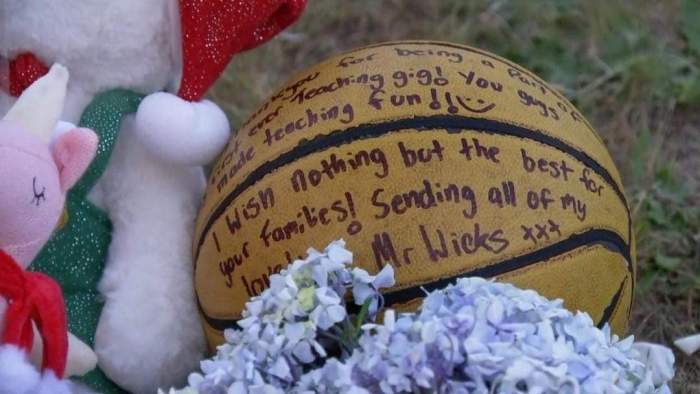 for being a part of
first ever teaching gig! You guys
made teaching fun!!
I wish nothing but the best for
your families! Sending all of my
love
Mr Wicks xxx